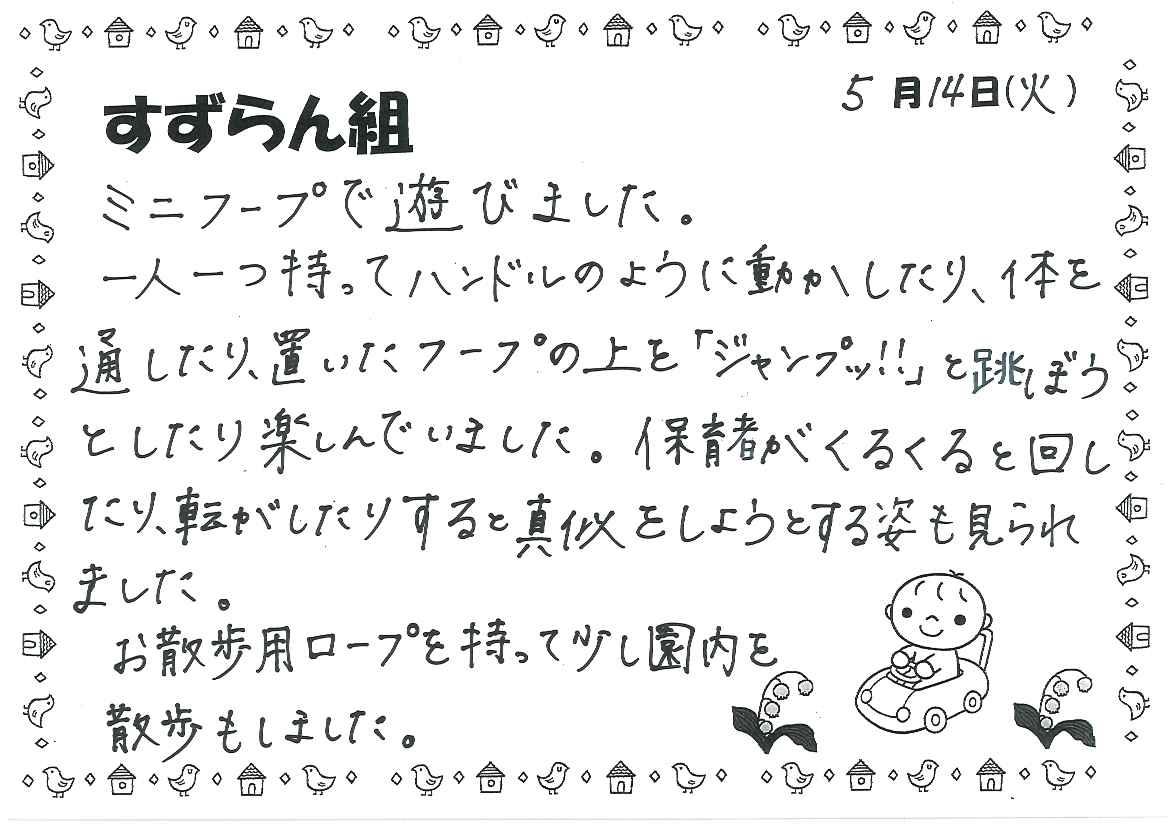 5月14日(火)
すずらん組
ミニフープで遊びました。
一人一つ持ってハンドルのように動かしたり、体を
通したり、置いたフープの上を「ジャンプッ!!」と跳ぼう
としたり楽しんでいました。保育者がくるくると回し
たり、転がしたりすると真似をしようとする姿も見られ
ました。
お散歩用ロープを持って少し園内を
散歩もしました。